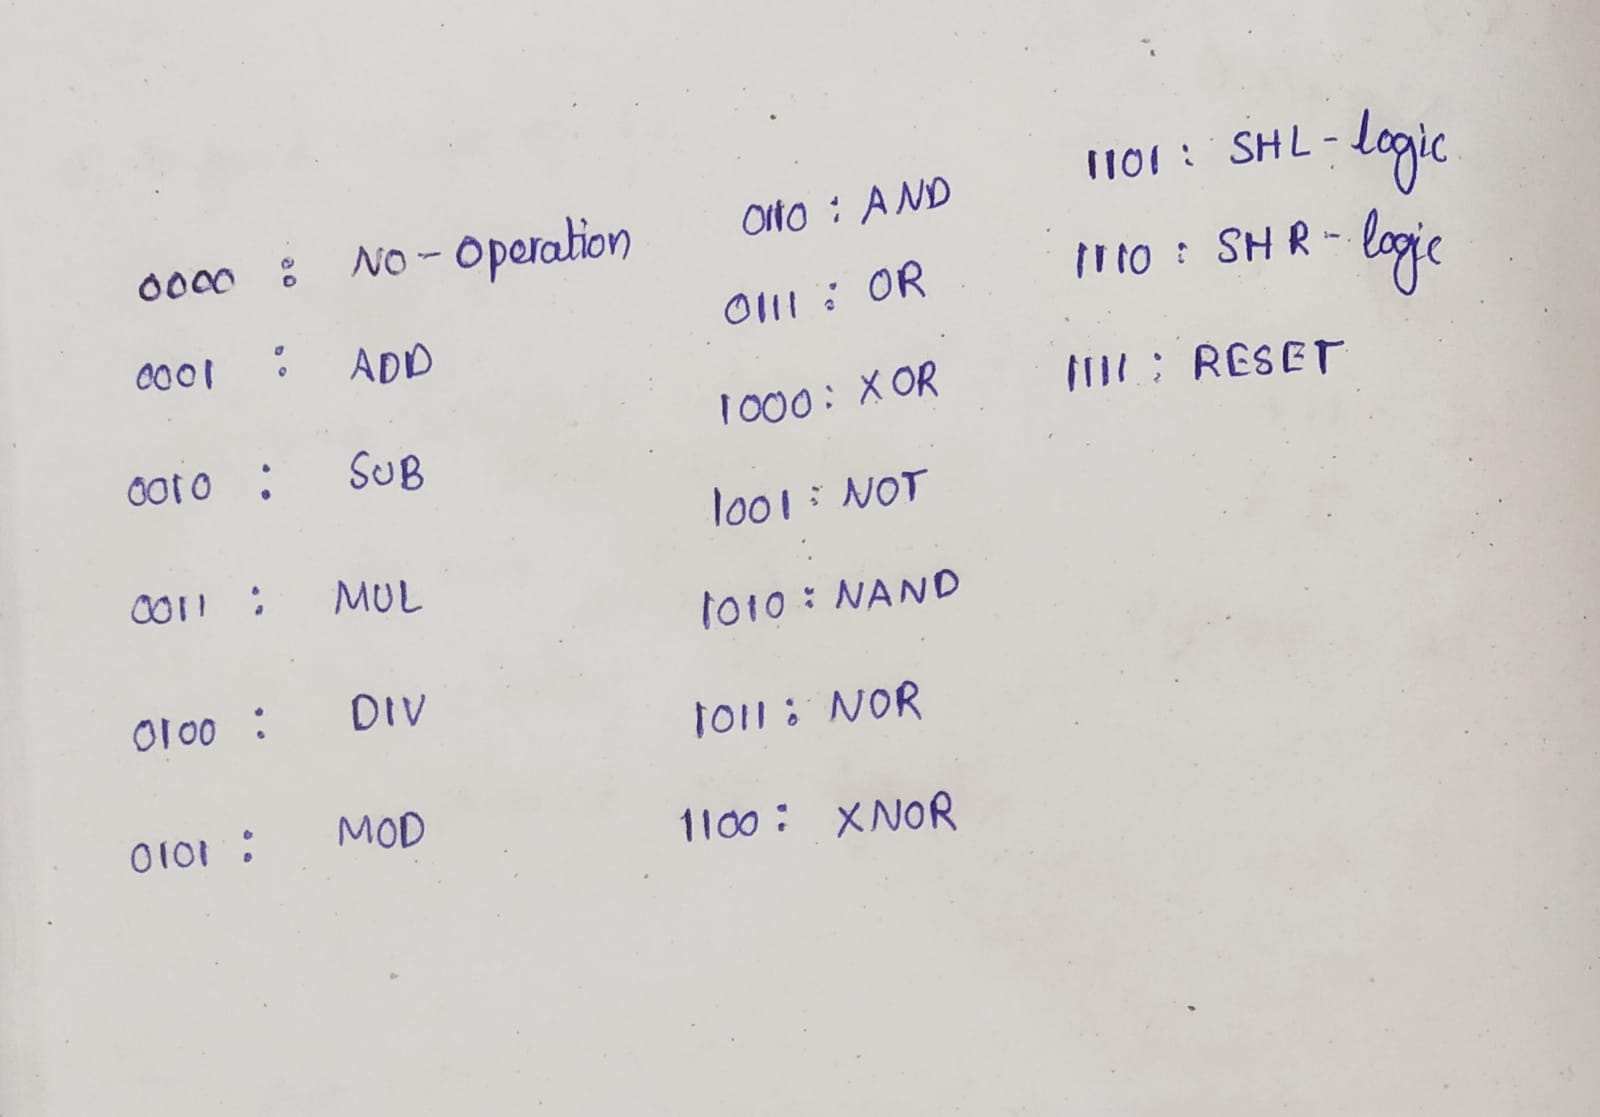 0000 : NO-Operation
0001 : ADD
0010 : SUB
0011 : MUL
0100 : DIV
0101 : MOD
0110 : AND
0111 : OR
1000 : XOR
1001 : NOT
1010 : NAND
1011 : NOR
1100 : XNOR
1101 : SHL-logic
1110 : SHR-logic
1111 : RESET